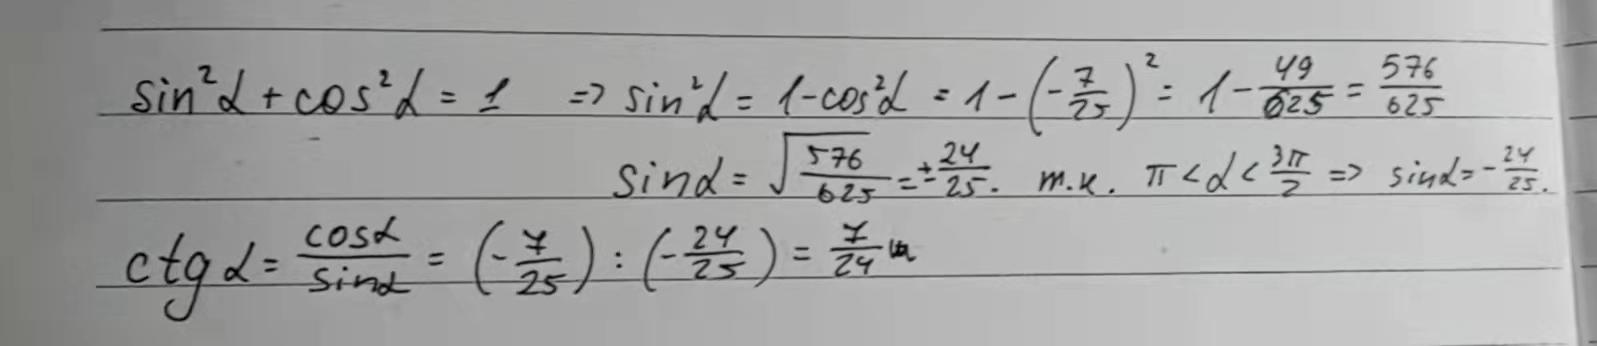 sin²α + cos²α = 1 => sin²α = 1 - cos²α = 1 - (-7/25)² = 1 - 49/625 = 576/625
sinα = √576/625 = ± 24/25. т.к. π < α < 3π/2 => sinα = -24/25.
ctg α = cosα/sinα = (-7/25) : (-24/25) = 7/24